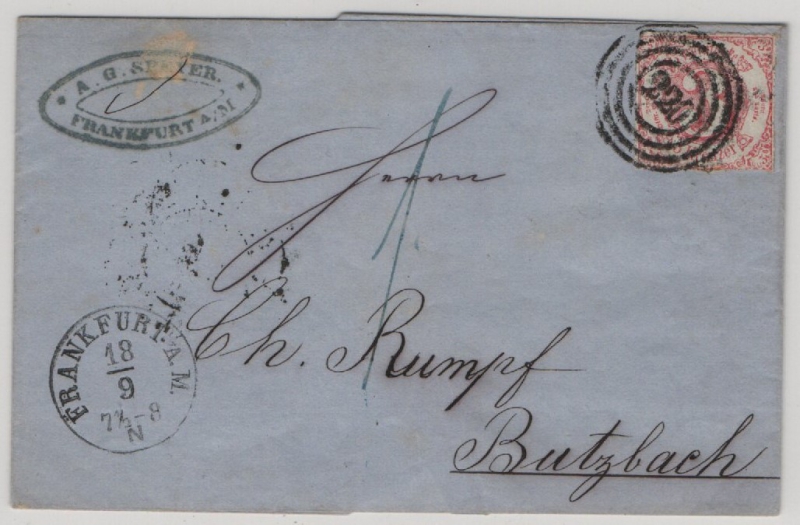 A. G. SPEYER.
FRANKFURT A/M
220
Herrn
1
Ch. Rumpf
Butzbach
FRANKFURT A. M.
18
9
7½-8
N